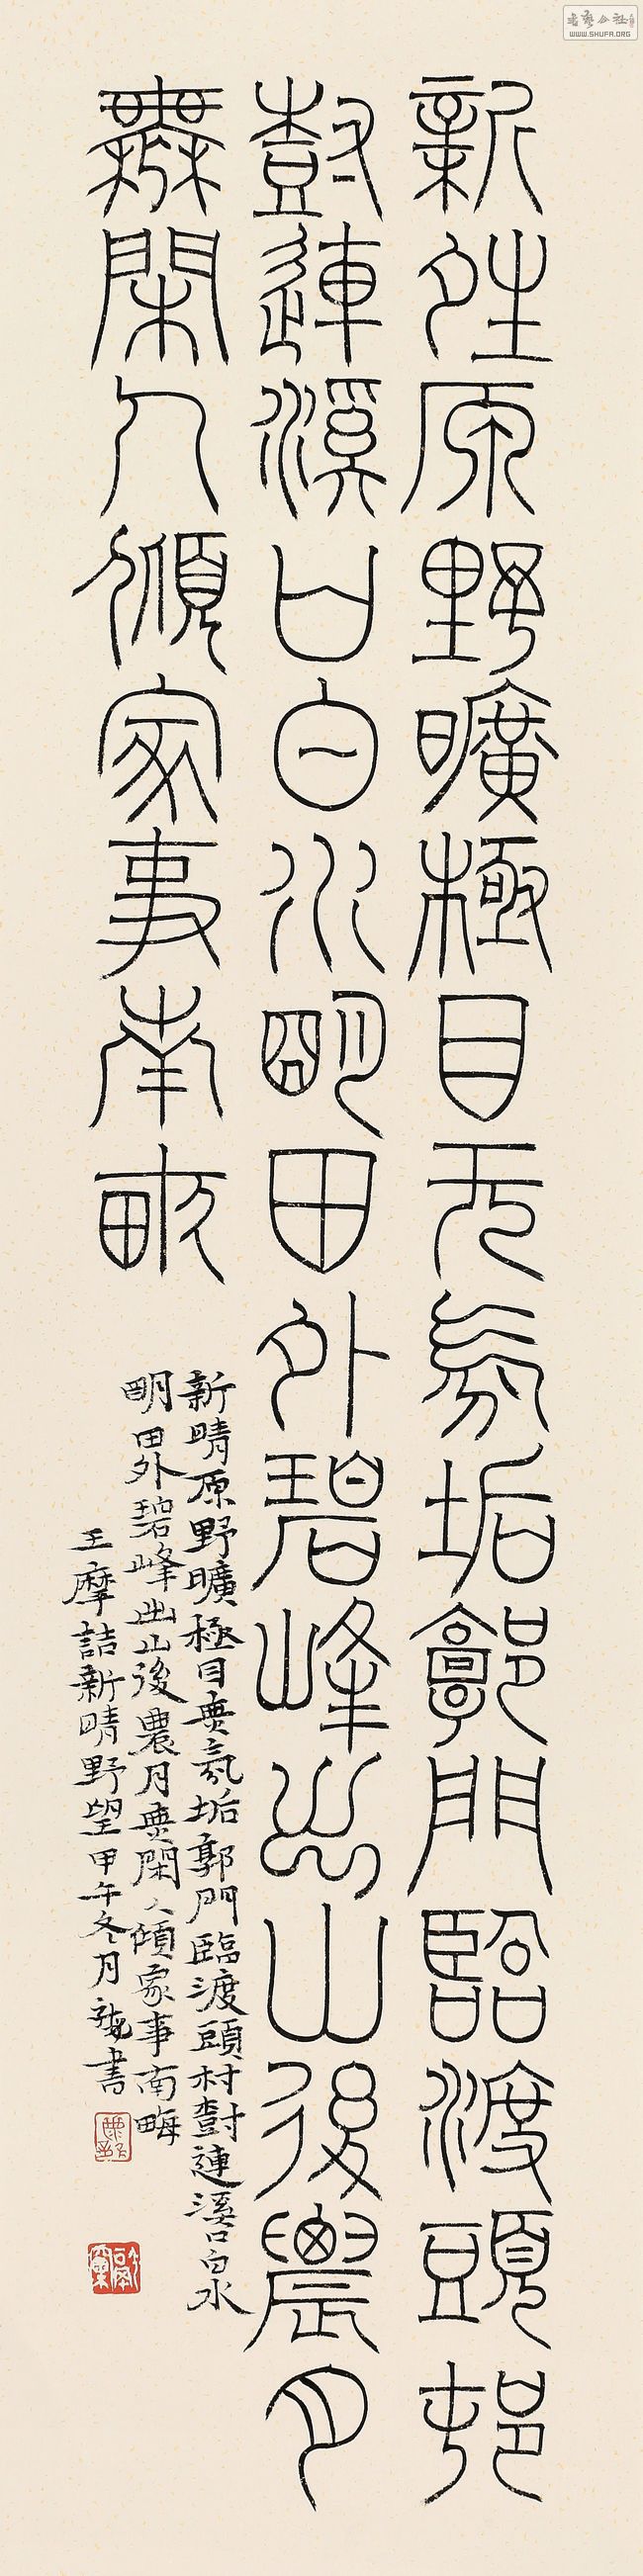 新姓原野曠極目无氛垢郭門臨渡頭邨
尌連溪口白水明田外碧峰出山後農月
無閑人傾家事南畝
新晴原野曠極目無氛垢郭門臨渡頭村尌連溪口白水
明田外碧峰出山後農月無閑人傾家事南畮
王摩詰新晴野望甲午冬月 書
WWW.SHUFA.ORG